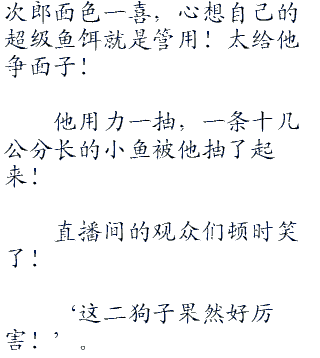 次郎面色一喜，心想自己的
超级鱼饵就是管用！太给他
争面子！
他用力一抽，一条十几
公分长的小鱼被他抽了起
来！
直播间的观众们顿时笑
了！
‘这二狗子果然好厉
害！’。